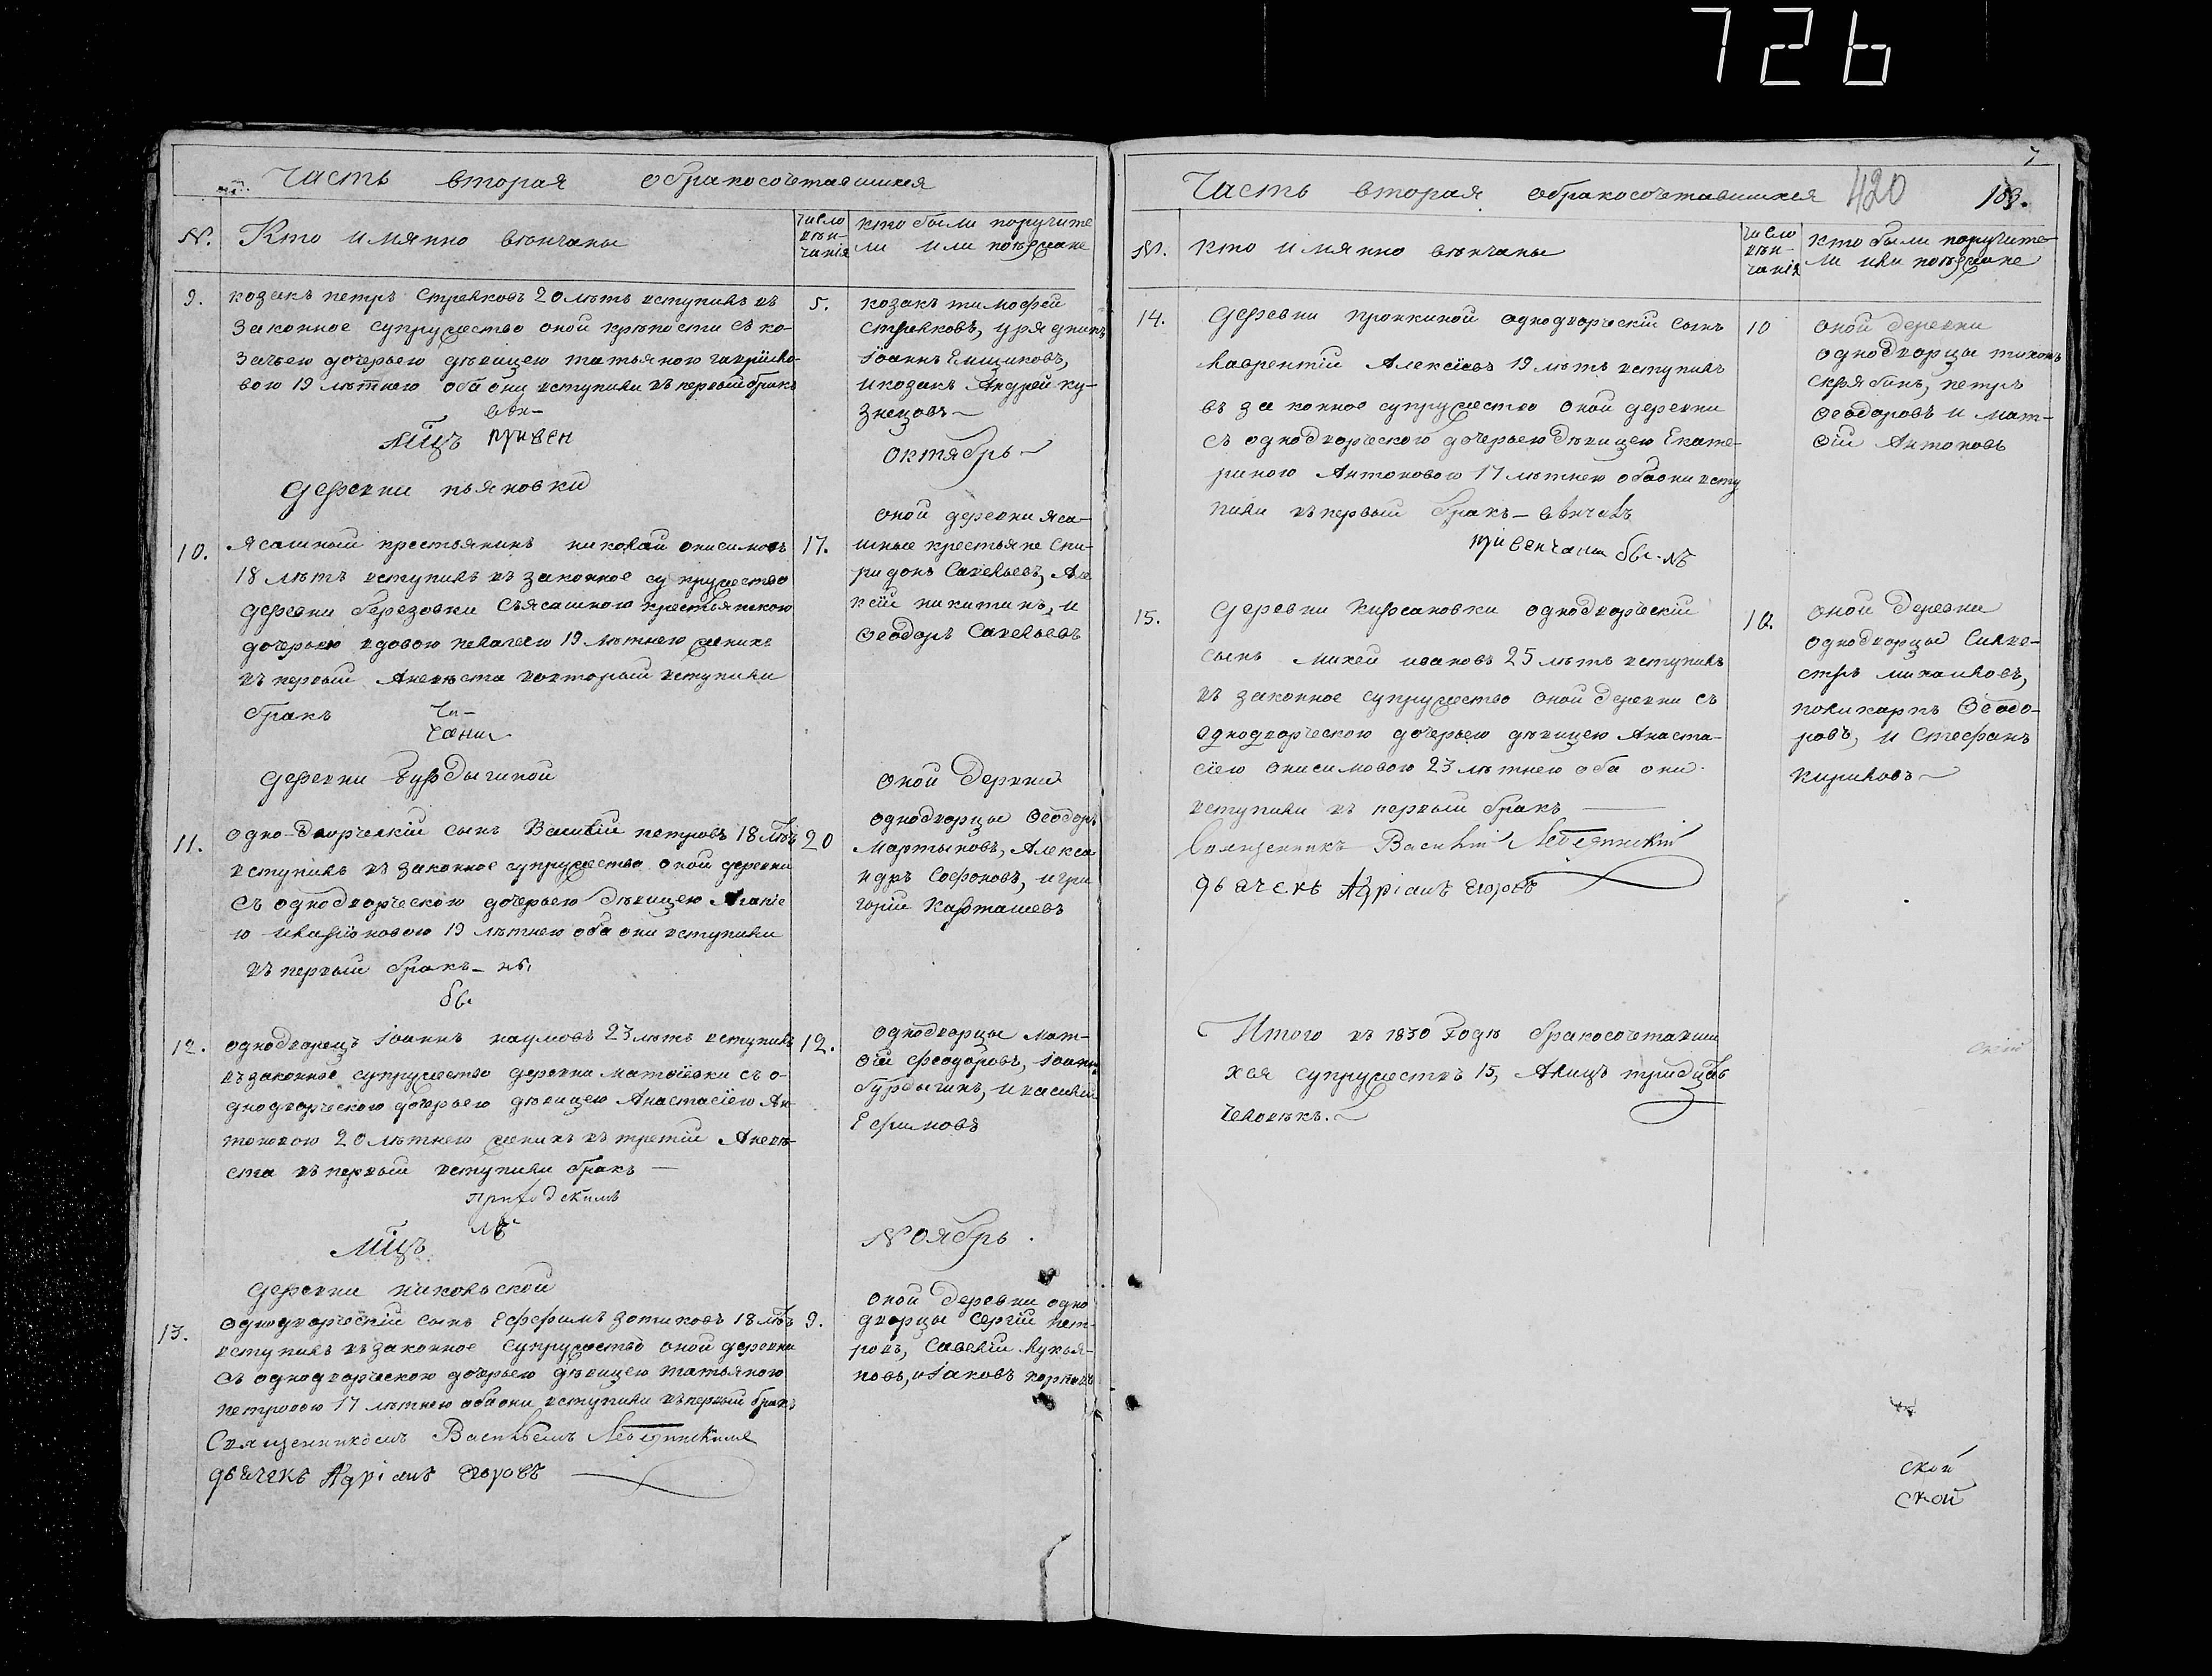 726
Часть вторая обракосочетавшихся
№. Кто имянно венчаны
число вѣнчанія
кто были поручите
ли или поезжане
9. козакъ петръ Стрелковъ 20 лѣтъ вступилъ въ
законное супружество оной крѣпости съ ко-
зачьею дочерью дѣвицею татьяною гаврило-
вою 19 лѣтнею оба они вступили въ первый бракъ
5. козакъ тимофей
стрелковъ, урядникъ
Iоаннъ Емщиковъ,
и козакъ Андрей ку-
знецовъ
Мцъ
привен
октябрь
деревни пьяновки
10. ясашный крестьянинъ николай онисимовъ
18 лѣтъ вступилъ въ законное супружество
деревни березовки съ ясашною крестьянскою
дочерью вдовою пелагеею 19 лѣтнею женихъ
въ первый Аневѣста вовторый вступили
бракъ
чаны
17. оной деревни яса-
шные крестьяне Спи-
ридонъ Савельевъ, Але
ксѣй никитинъ, и
Ѳеодоръ Савельевъ
деревни бурдыгиной
11. одно-дворческій сынъ Василій петровъ 18 лѣтъ
вступилъ въ законное супружество оной деревни
съ однодворческою дочерью дѣвицею Агапіе
ю иларіоновою 19 лѣтнею оба они вступили
въ первый бракъ
20 оной деревни
однодворцы Ѳеодоръ
Мартыновъ, Алекса
ндръ Сафоновъ, и гри
горій Карташевъ
12. однодворецъ Iоаннъ наумовъ 23 лѣтъ вступилъ
въ законное супружество деревни матвѣевки съ о-
днодворческою дочерью дѣвицею Анастасіею Ан-
тоновою 20 лѣтнею женихъ въ третій Аневѣ-
ста въ первый вступили бракъ
приходскимъ
12. однодворцы мат-
ѳій феодоровъ, Iоаннъ
бурдыгинъ, и василій
Ефимовъ
Мцъ
Ноябрь
деревни никольской
13. однодворческій сынъ Ефефимъ зотиковъ 18 лѣтъ
вступилъ въ законное супружество оной деревни
съ однодворческою дочерью дѣвицею татьяною
петровою 17 лѣтнею оба они вступили въ первый бракъ
Священникомъ Васильемъ Лебединскимъ
дьячекъ Адріанъ Егоровъ
9. оной деревни одно
дворцы Сергій пет-
ровъ, Савелій лукья-
новъ, и Iаковъ
7
Часть вторая обракосочетавшихся
420
№. кто имянно вѣнчаны
число вѣнчанія
кто были поручите-
ли или поезжане
14. деревни пронкиной однодворческій сынъ
лаврентій Алексіевъ 19 лѣтъ вступилъ
въ законное супружество оной деревни
съ однодворческою дочерью дѣвицею Екате-
риною Антоновою 17 лѣтнею оба они всту
пили въ первый бракъ
привенчаны
10 оной деревни
однодворцы тихонъ
скрябинъ, петръ
Ѳеодоровъ и мат-
ѳій Антоновъ
15. деревни Кирсановки однодворческій
сынъ михей ивановъ 25 лѣтъ вступилъ
въ законное супружество оной деревни съ
однодворческою дочерью дѣвицею Анаста-
сіею онисимовою 23 лѣтнею оба они
вступили въ первый бракъ
Священникъ Василій Лебединскій
дьячекъ Адріанъ Егоровъ
10. оной деревни
однодворцы Силве-
стръ михаиловъ,
поликарпъ Ѳеодо-
ровъ, и Стефанъ
кириловъ
Итого въ 1830 Годѣ бракосочетавши
хся супружествъ 15, Алицъ тридцать
человѣкъ.
ской
ской